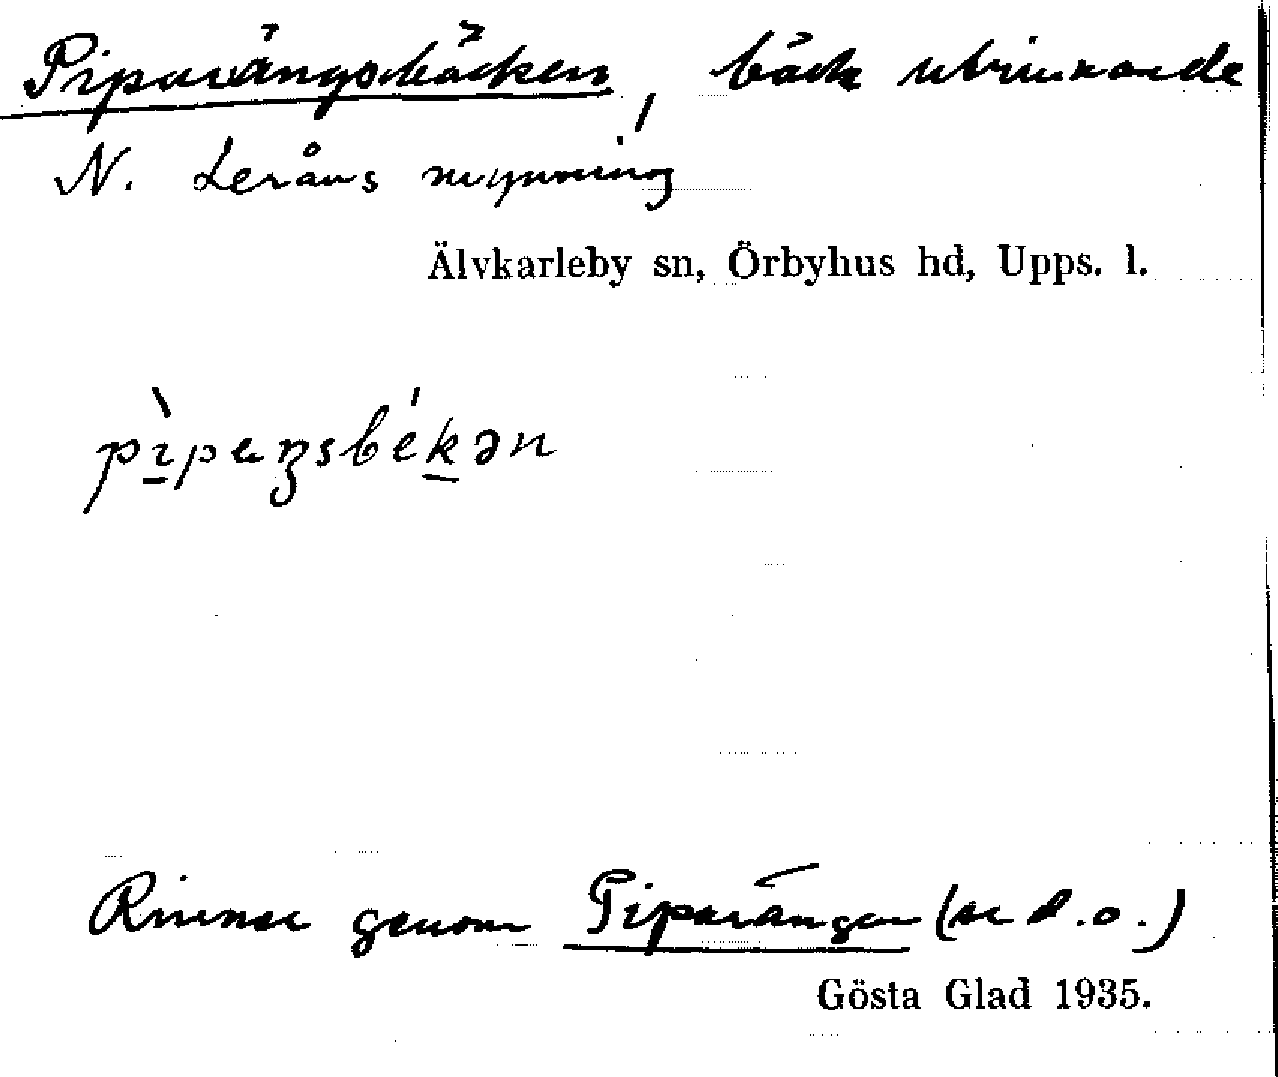 Piparängsbäcken, bäck utrinnande
N. Leråns mynning
Älvkarleby sn, Örbyhus hd, Upps. l.
pìpeŋsbékən
Rinner genom Piparängen (se d.o.)
Gösta Glad 1935.